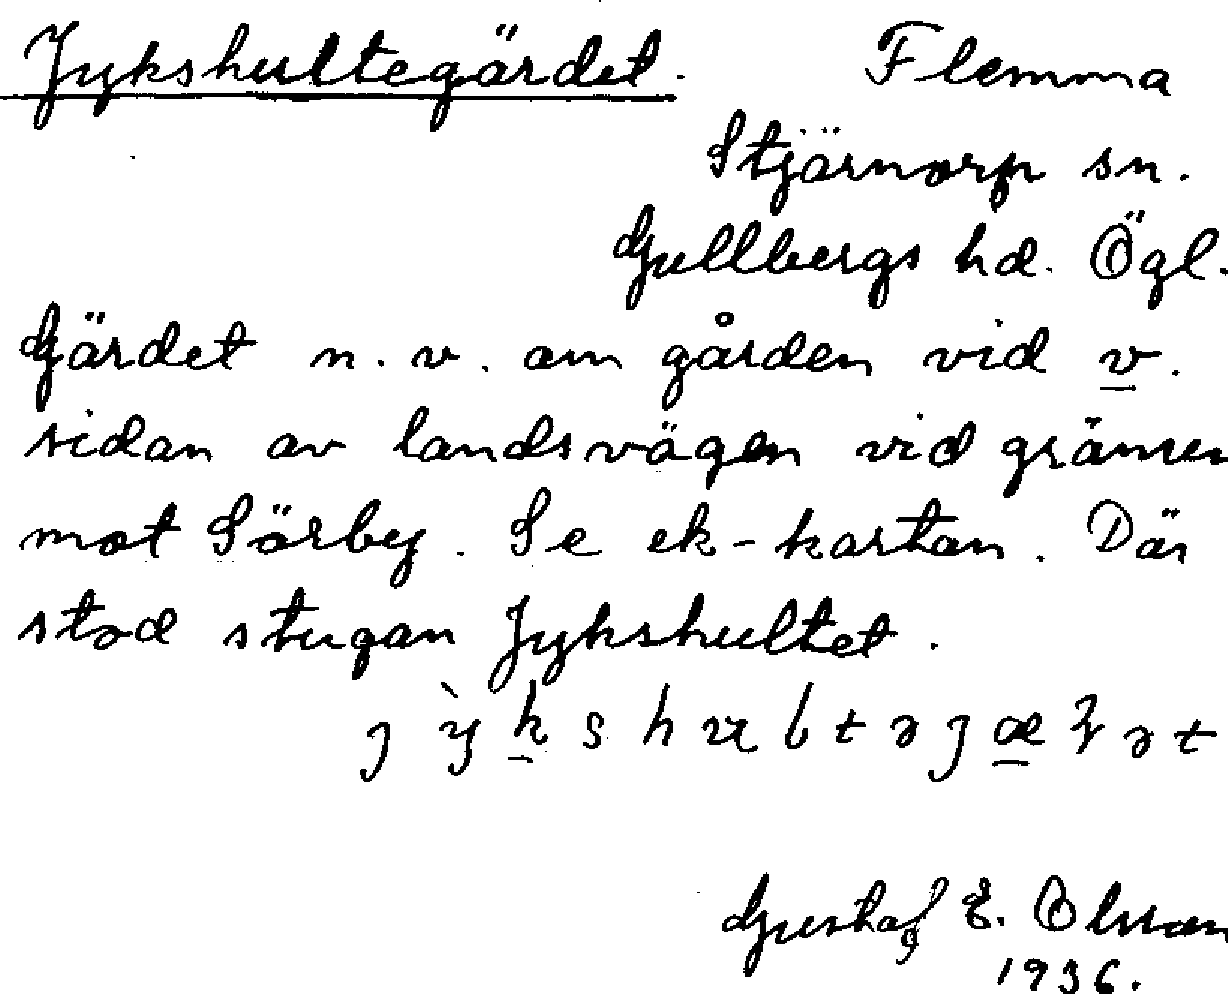 Jykshultegärdet. Flemma
Stjärnorp sn.
Gullbergs hd. Ögl.
Gärdet n. v. om gården vid v.
sidan av landsvägen vid gränsen
mot Sörby. Se ek-kartan. Där
stod stugan Jykshultet.
Gustaf E. Olsson
1936.